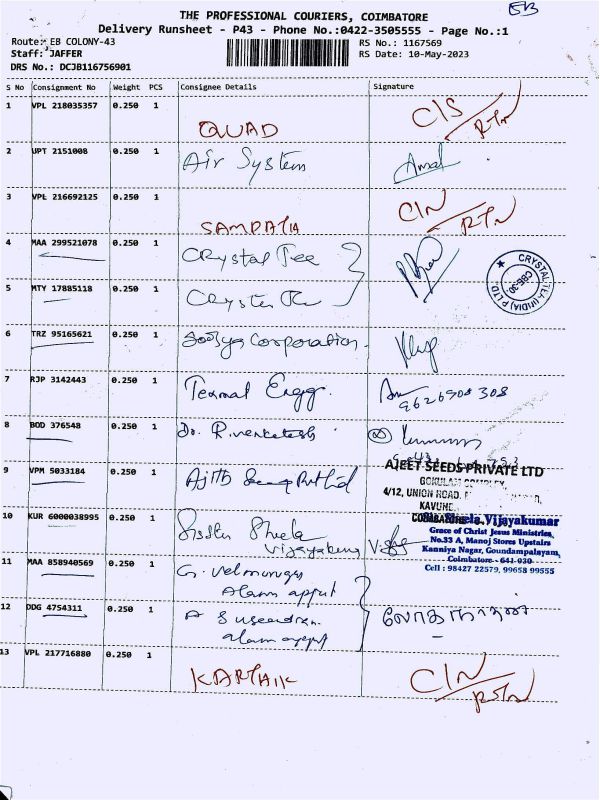 EB
THE PROFESSIONAL COURIERS, COIMBATORE
Delivery Runsheet - P43 - Phone No.:0422-3505555 - Page No.:1
Route: EB COLONY-43
RS No.: 1167569
Staff: JAFFER
RS Date: 10-May-2023
DRS No.: DCJB116756901
S No Consignment No Weight PCS Consignee Details Signature
1 VPL 218035357 0.250 1 QUAD C/S RTN
2 UPT 2151008 0.250 1 Air System Amal
3 VPL 216692125 0.250 1 SAMPATH C/N RTN
4 MAA 299521078 0.250 1 Crystal Tee
CRYSTAL TEA (INDIA) P LTD. CBE-30
5 MTY 17885118 0.250 1
6 TRZ 95165621 0.250 1 Corporation.
7 RJP 3142443 0.250 1 Texmat Engg. 9626908308
8 BOD 376548 0.250 1 Dr. R. Venketesh
9 VPM 5033184 0.250 1 Ajith Pvt Ltd
AJEET SEEDS PRIVATE LTD
GOKULAM COMPLEX,
4/12, UNION ROAD,
COIMBATORE
10 KUR 6000038995 0.250 1 Sister Sheela
Vijayakumar
Sheela Vijayakumar
Grace of Christ Jesus Ministries,
No.33 A, Manoj Stores Upstairs
Kanniya Nagar, Goundampalayam,
Coimbatore - 641 030
Cell : 98427 22579, 99658 99555
11 MAA 858940569 0.250 1 G. Velmurugan
12 DDG 4754311 0.250 1 லோகநாதன்
13 VPL 217716880 0.250 1 KARTHIK C/N RTN